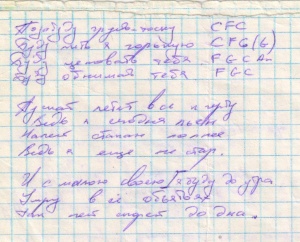 грусть-тоску CFC
Буду пить я горькую CFG(G)
Буду целовать тебя FGCAm
Буду обнимать тебя FGC
Пускай летит все к чёрту
Ведь я сегодня пьян
Налей стакан полнее
Ведь я еще не стар.
И с милою своею буду до утра
Умру в её объятьях
до дна.